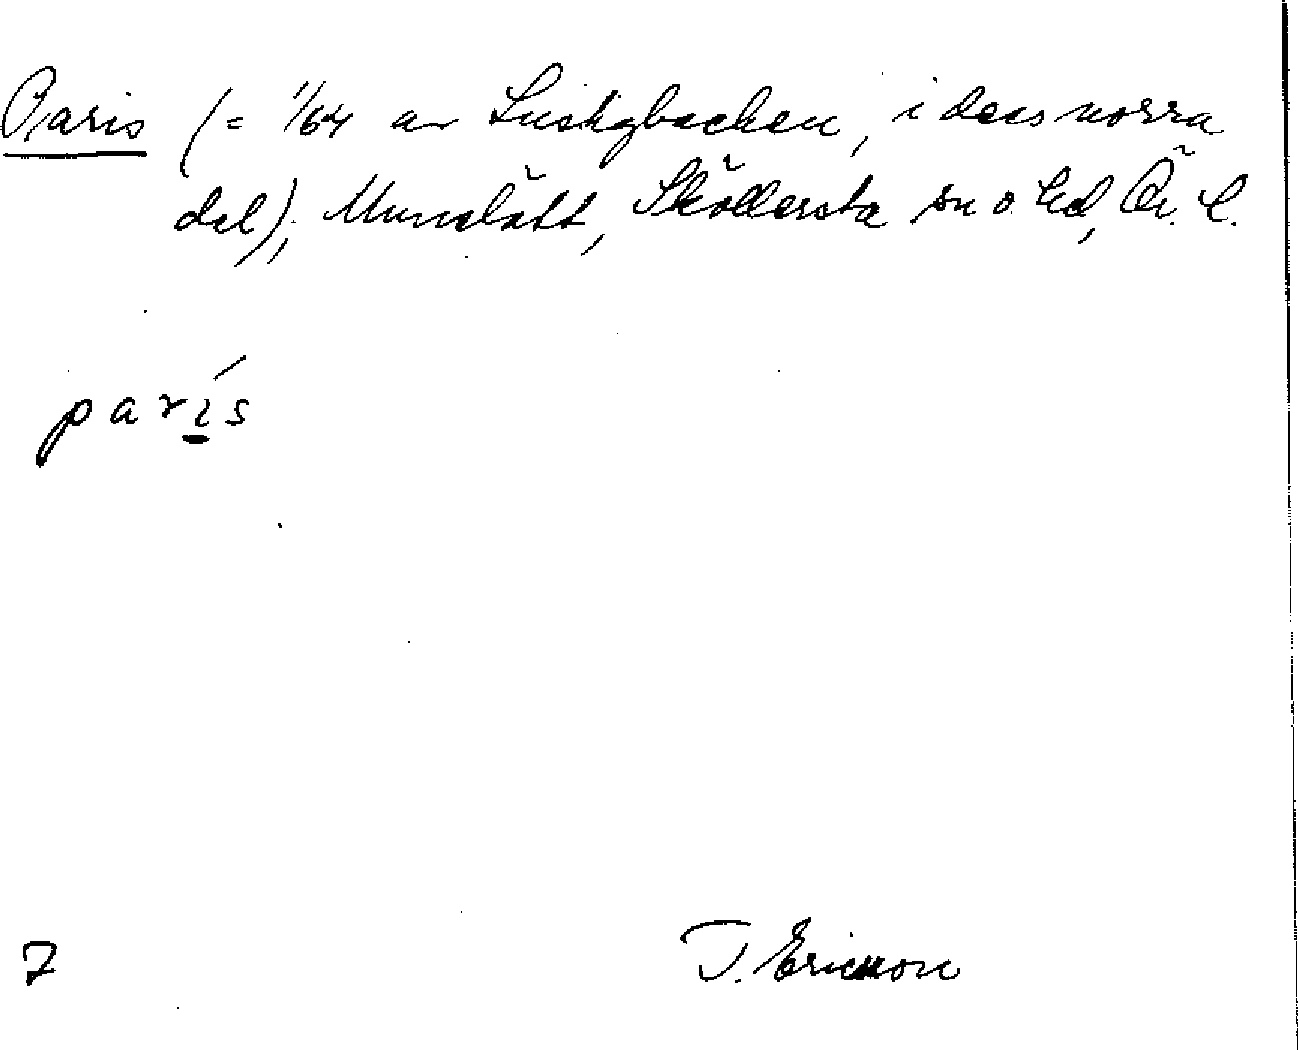 Paris (= 1/64 av Lustigbacken, i dess norra
del), Munslätt, Sköllersta sn o hd, Ör. l.
parís
7 T. Ericsson